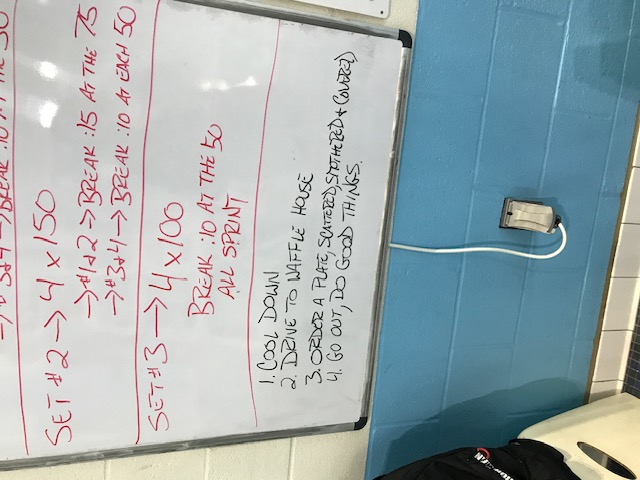 →#3&4 →BREAK :10 AT THE 50
SET #2 → 4 x 150
→#1&2 → BREAK :15 AT THE 75
→#3&4 → BREAK :10 AT EACH 50
SET #3 → 4 x 100
BREAK :10 AT THE 50
ALL SPRINT
1. COOL DOWN
2. DRIVE TO WAFFLE HOUSE
3. ORDER A PLATE, SCATTERED, SMOTHERED & COVERED
4. GO OUT, DO GOOD THINGS.